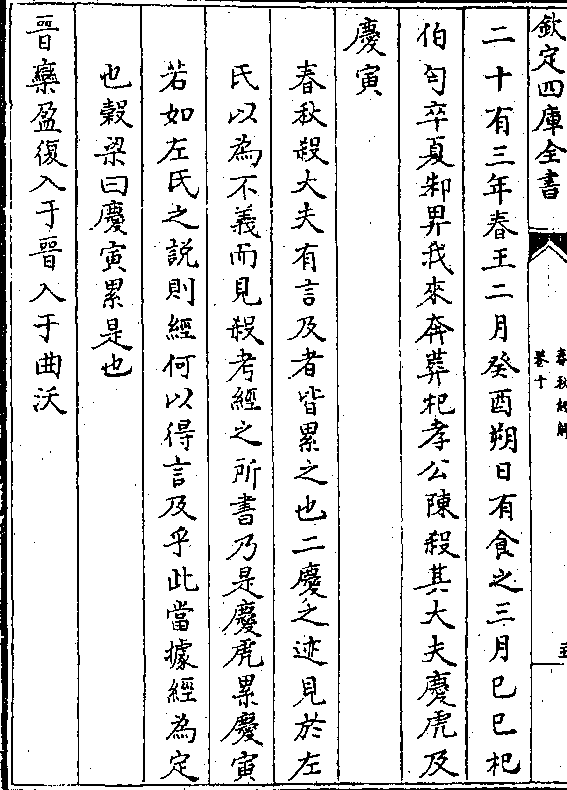 欽定四庫全書
春秋經解
卷十
二十有三年春王二月癸酉朔日有食之三月己巳杞
伯匄卒夏邾畀我來奔葬杞孝公陳殺其大夫慶虎及
慶寅
春秋殺大夫有言及者皆累之也二慶之迹見於左
氏以為不義而見殺考經之所書乃是慶虎累慶寅
若如左氏之說則經何以得言及乎此當據經為定
也榖梁曰慶寅累是也
晉欒盈復入于晉入于曲沃